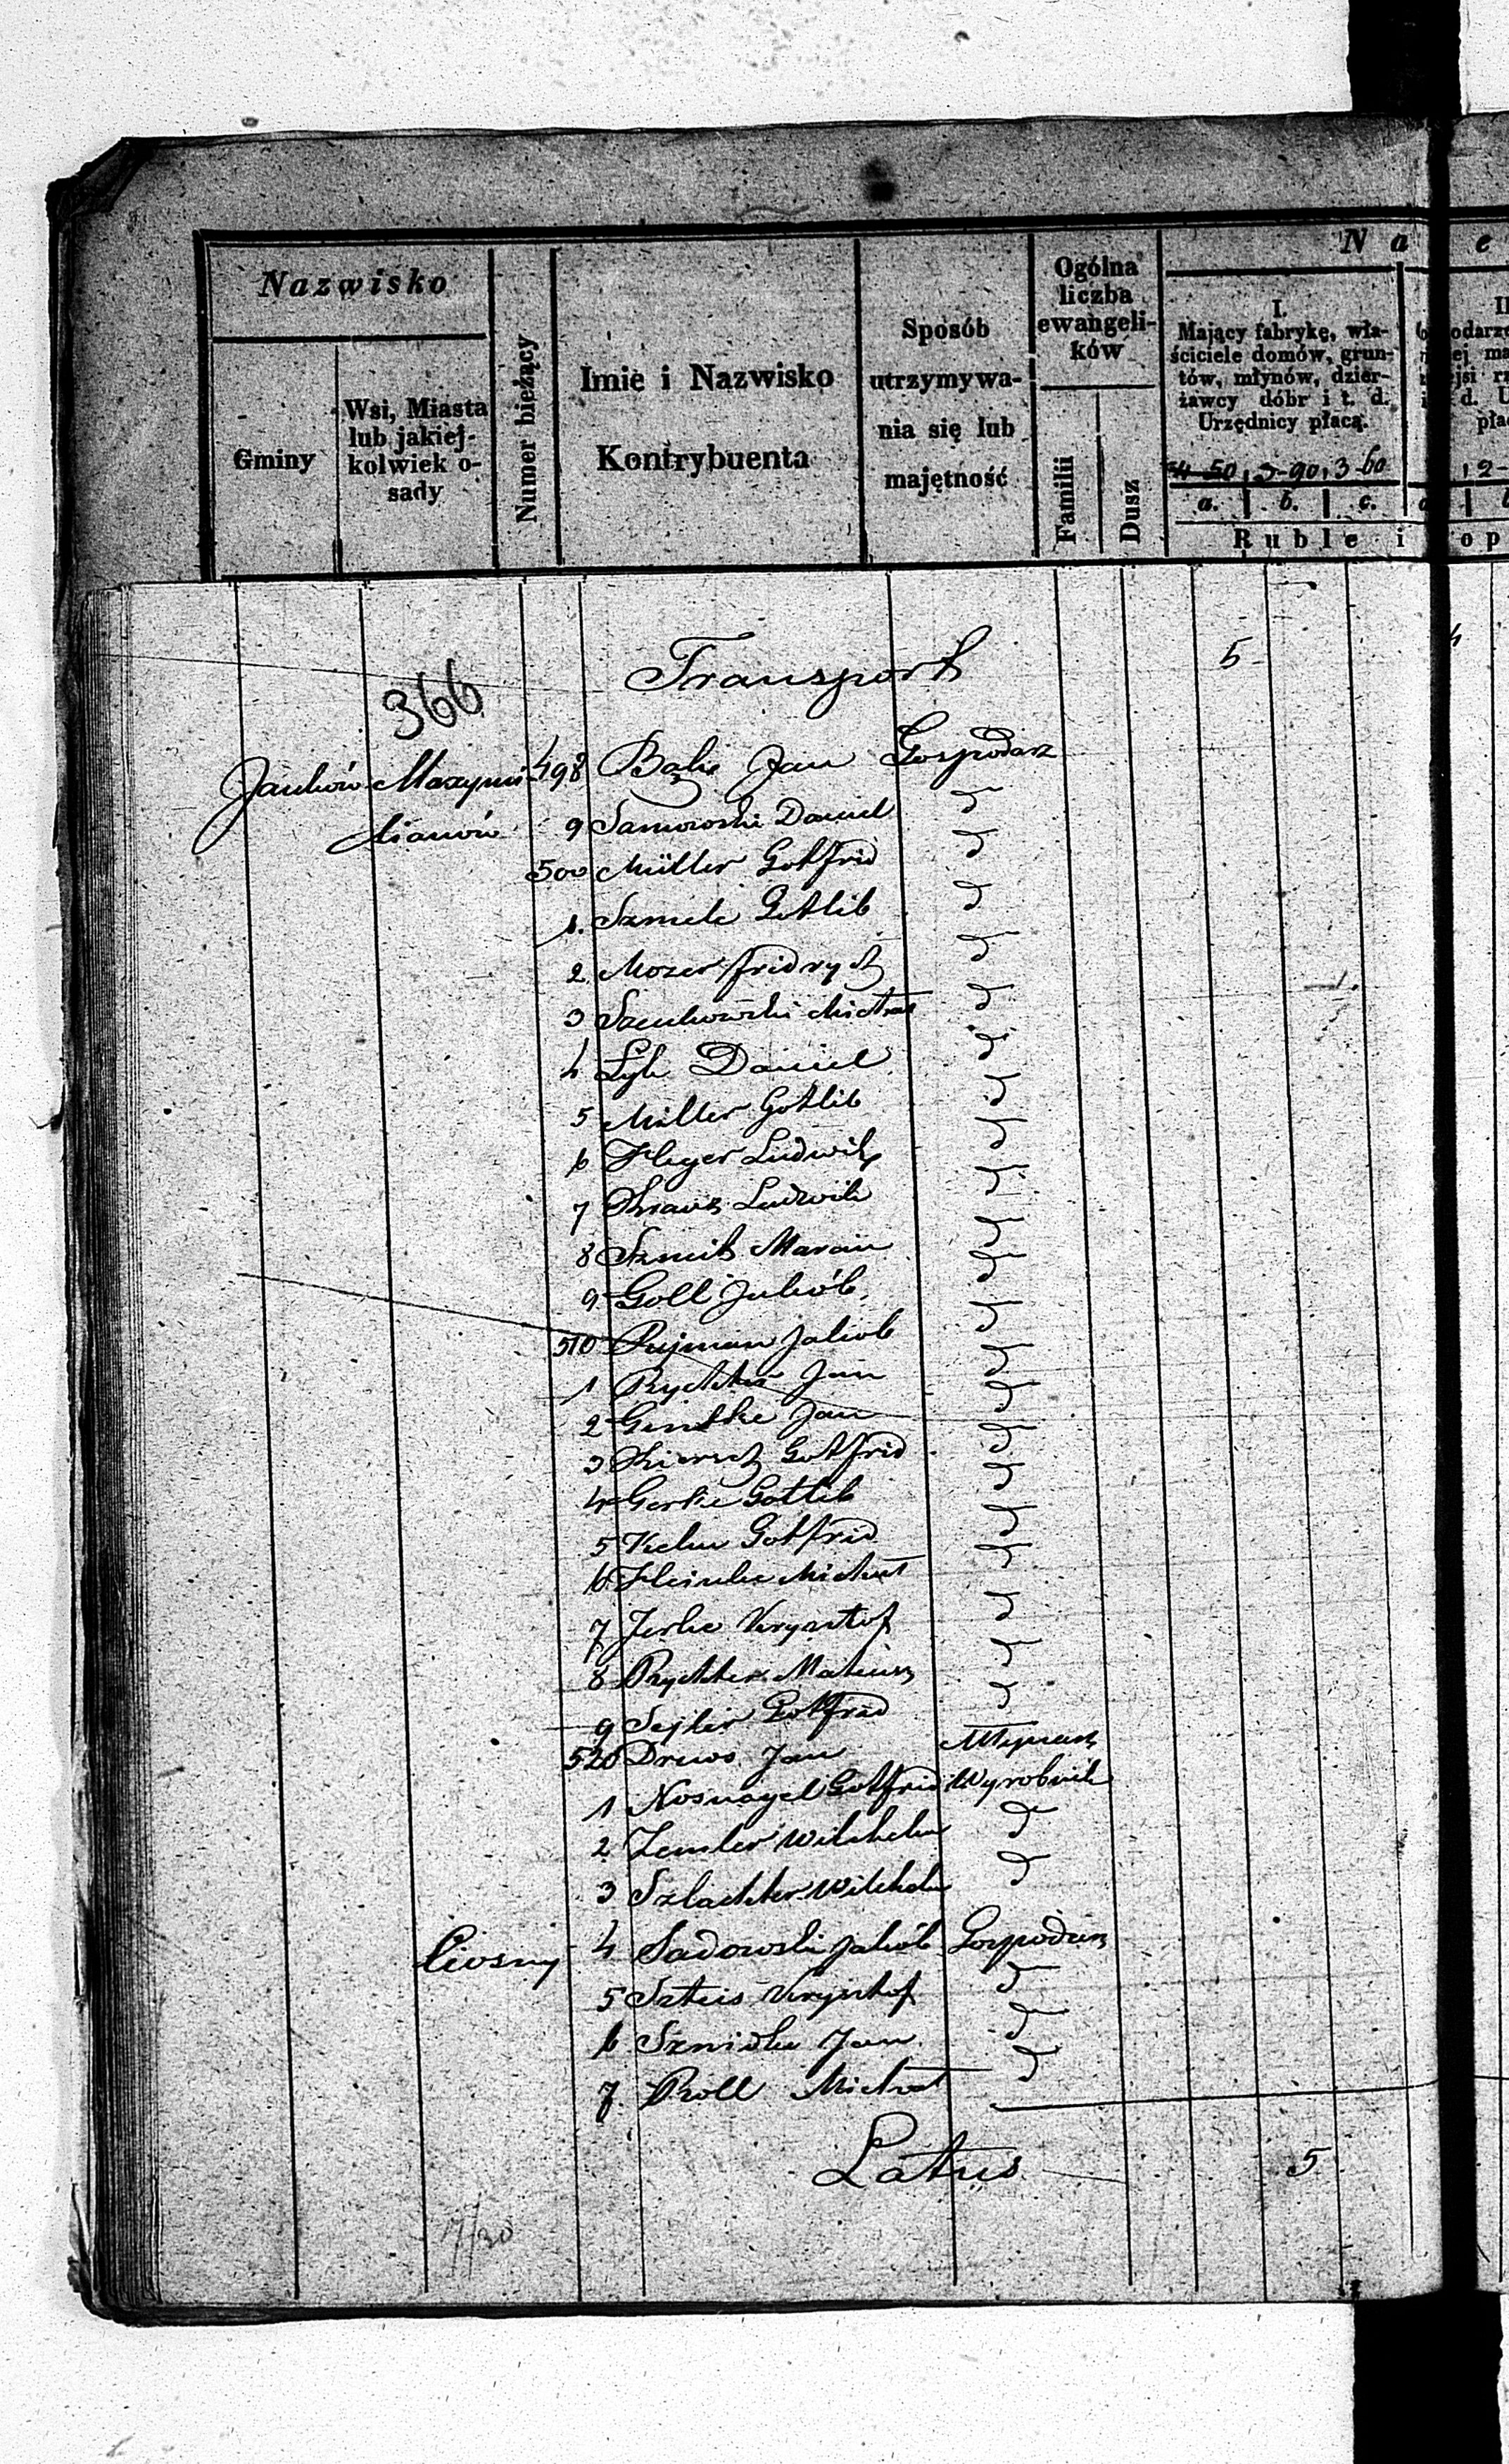 Nazwisko
Gminy
Wsi, Miasta
lub jakiej-
kolwiek o-
sady
Numer bieżący
Imie i Nazwisko
Kontrybuenta
Sposób
utrzymywa-
nia się lub
majętność
Ogólna
liczba
ewangeli-
ków
Familii
Dusz
N a
e
I.
Mający fabrykę, wła-
ściciele domów, grun-
tów, młynów, dzier-
żawcy dóbr i t. d.
Urzędnicy płacą.
4-50 3-90 3 60
a. b. c.
Ruble i
op
Transport 5
366
Janków Maxymi 498 Bąk Jan Gospodarz
lianów 9 Daniel d
500 Müller Gotfrid d
1. Gotlib d
2 Mozer Fridrych d
3 Michał d
4 Daniel d
5 Miller Gotlib d
6 Fleger Ludwik d
7 Kraus Ludwik d
8 Szmit Marcin d
9 Goll Jakób d
510 Jakob d
1 Rychter Jan d
2 Jan d
3 Gotfrid d
4 Gerke Gotlib d
5 Gotfrid d
6 Michał d
7 Jerke Krysztof d
8 Rychter Mateusz d
9 Sejler Gotfrid d
520 Drews Jan Młynarz
1 Nosnagel Gotfrid Wyrobnik
2 Zemler Wilchelm d
3 Szlachter Wilchelm d
Ciosny 4 Sadowski Jakób Gospodarz
5 Krysztof d
6 Szmidke Jan d
7. Roll Michał d
Latus 5